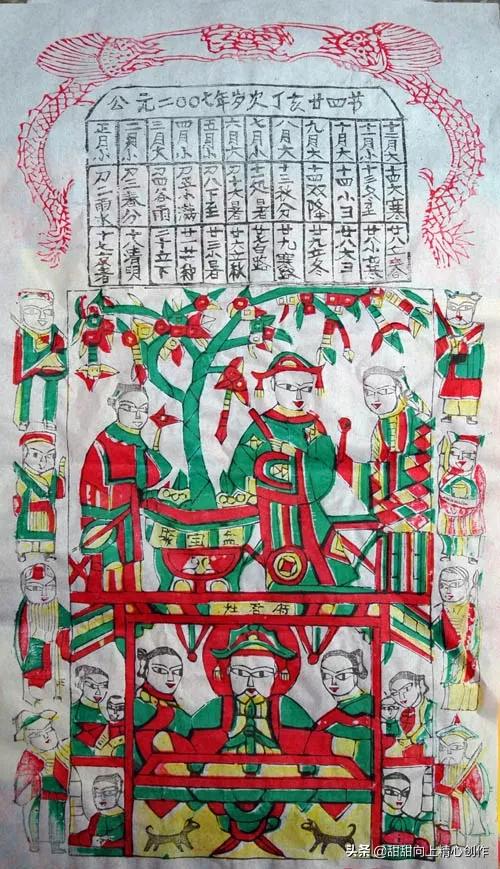 公元二〇〇七年岁次丁亥廿四节
正月小 二月小 三月大 四月小 五月小 六月大 七月小 八月大 九月大 十月大 十一月小 十二月大
刀二雨水 刀三春分 四谷雨 刀五小满 刀八下至 刀十大暑 十一処暑 十三秋分 十四双降 十四小彐 十三冬至 十四大寒
十七 十八清明 二十立下 廿一 廿三小暑 廿六立秋 廿七白 廿九寒露 廿九立冬 廿八大彐 小寒 廿八立春
聚宝盆
头条 @甜甜向上精心创作